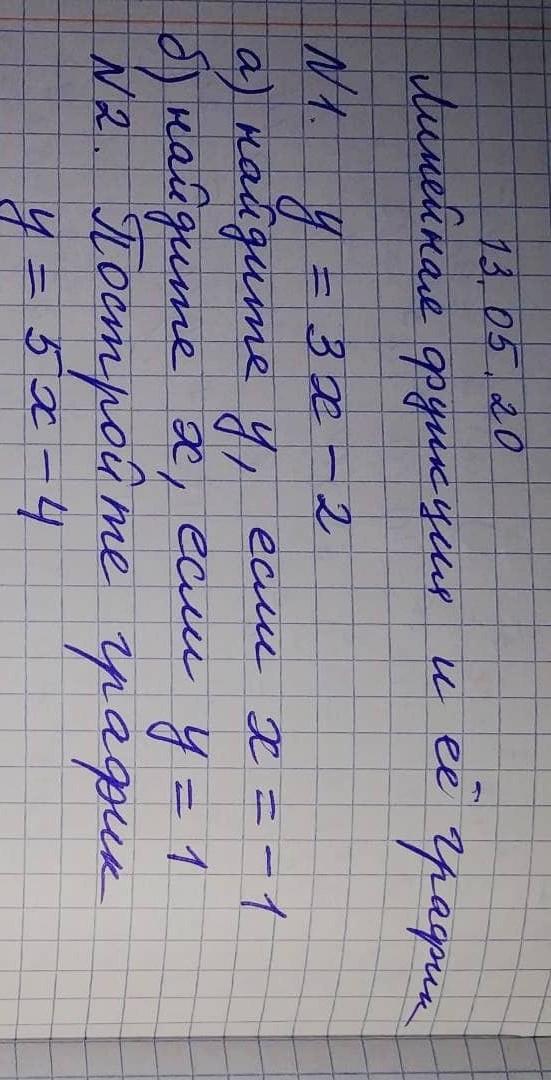 13.05.20
Линейная функция и её график
N1. y = 3x - 2
а) найдите y, если x = -1
б) найдите x, если y = 1
N2. Постройте график
y = 5x - 4